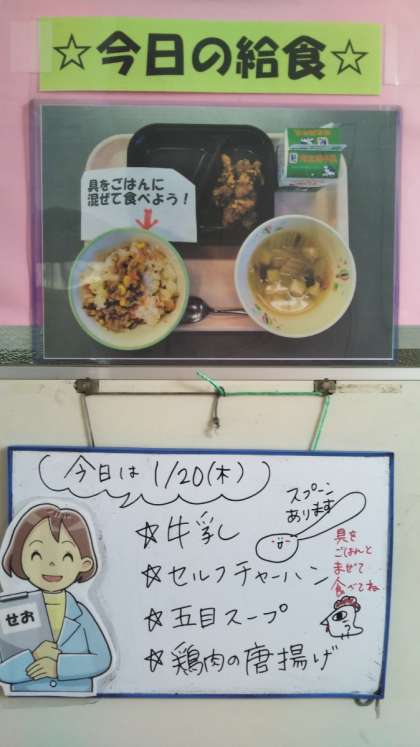 ☆今日の給食☆
具をごはんに
混ぜて食べよう！
今日は 1/20(木)
スプーン
あります
☆牛乳
☆セルフチャーハン
☆五目スープ
☆鶏肉の唐揚げ
具を
ごはんと
まぜて
食べてね
せお